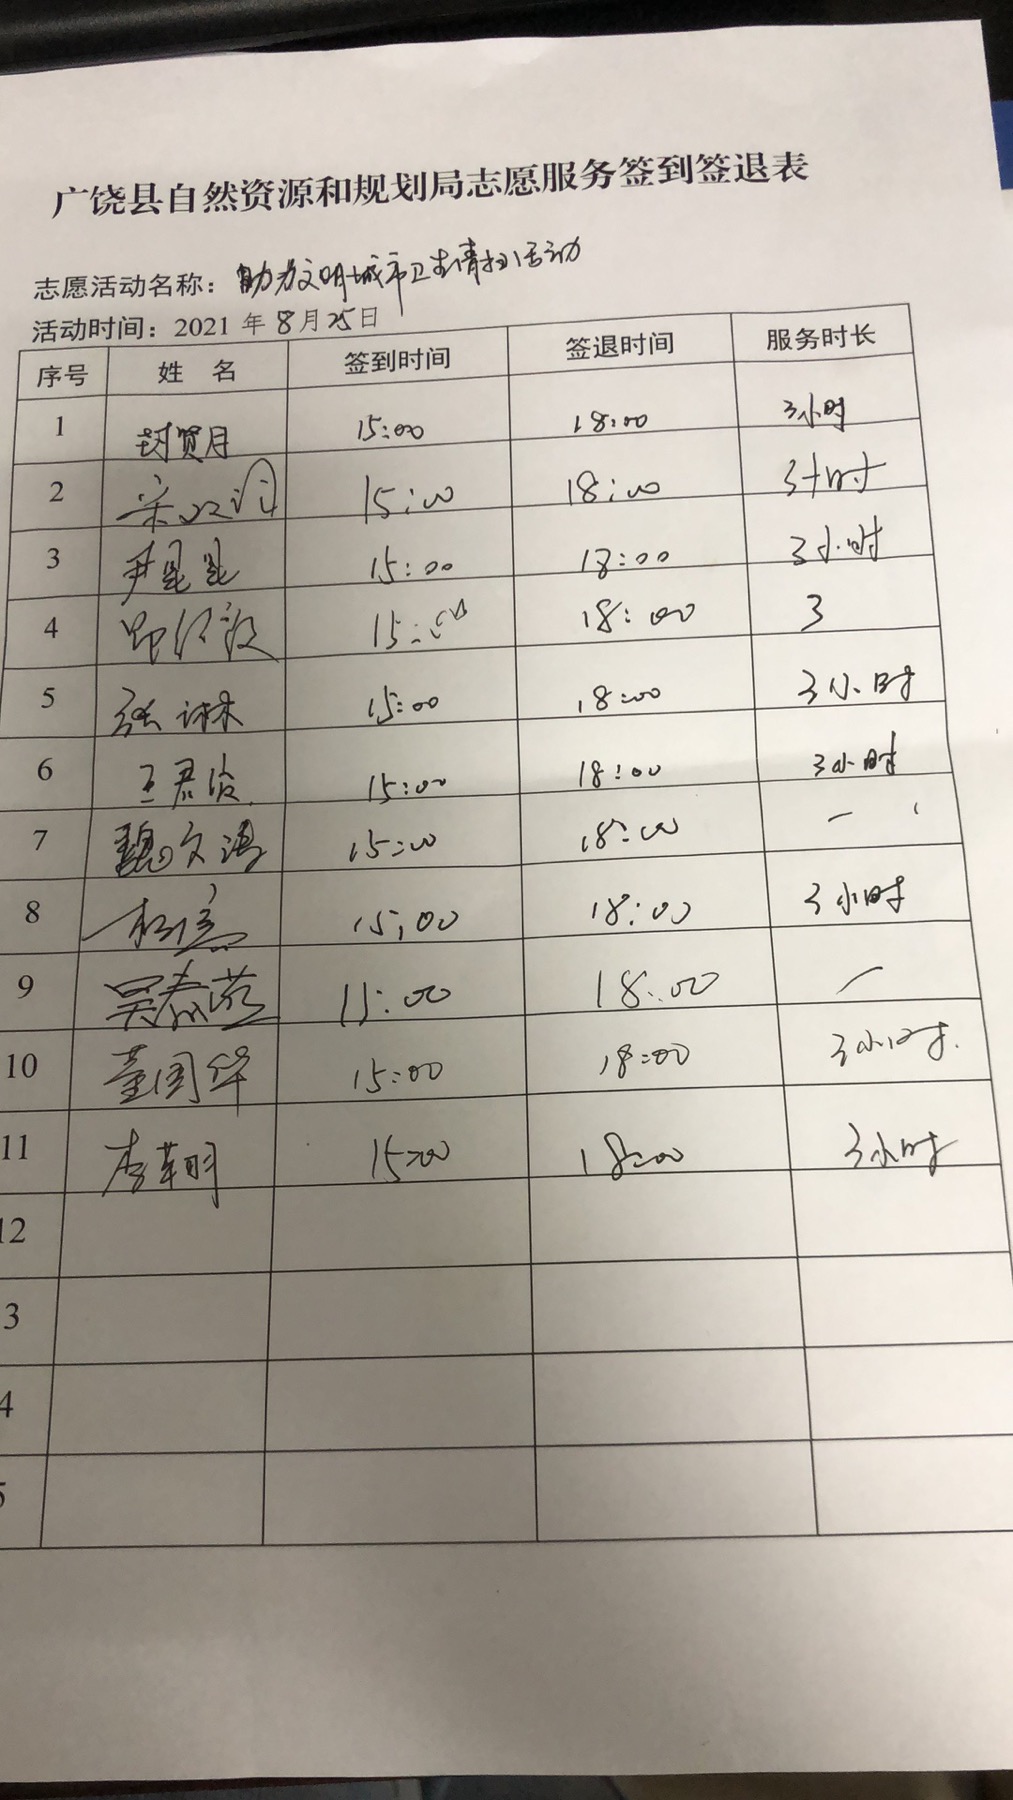 广饶县自然资源和规划局志愿服务签到签退表
志愿活动名称：助力文明城市卫生清扫活动
活动时间：2021 年 8 月 25 日
序号 姓 名 签到时间 签退时间 服务时长
1 封贤月 15:00 18:00 3小时
2 宋 15:00 18:00 3小时
3 尹昆昆 15:00 18:00 3小时
4 15:00 18:00 3
5 张琳 15:00 18:00 3小时
6 王君 15:00 18:00 3小时
7 魏文涛 15:00 18:00 一
8 15:00 18:00 3小时
9 吴春燕 15:00 18:00 一
10 董国华 15:00 18:00 3小时.
11 李 明 15:00 18:00 3小时
12
3
4
5